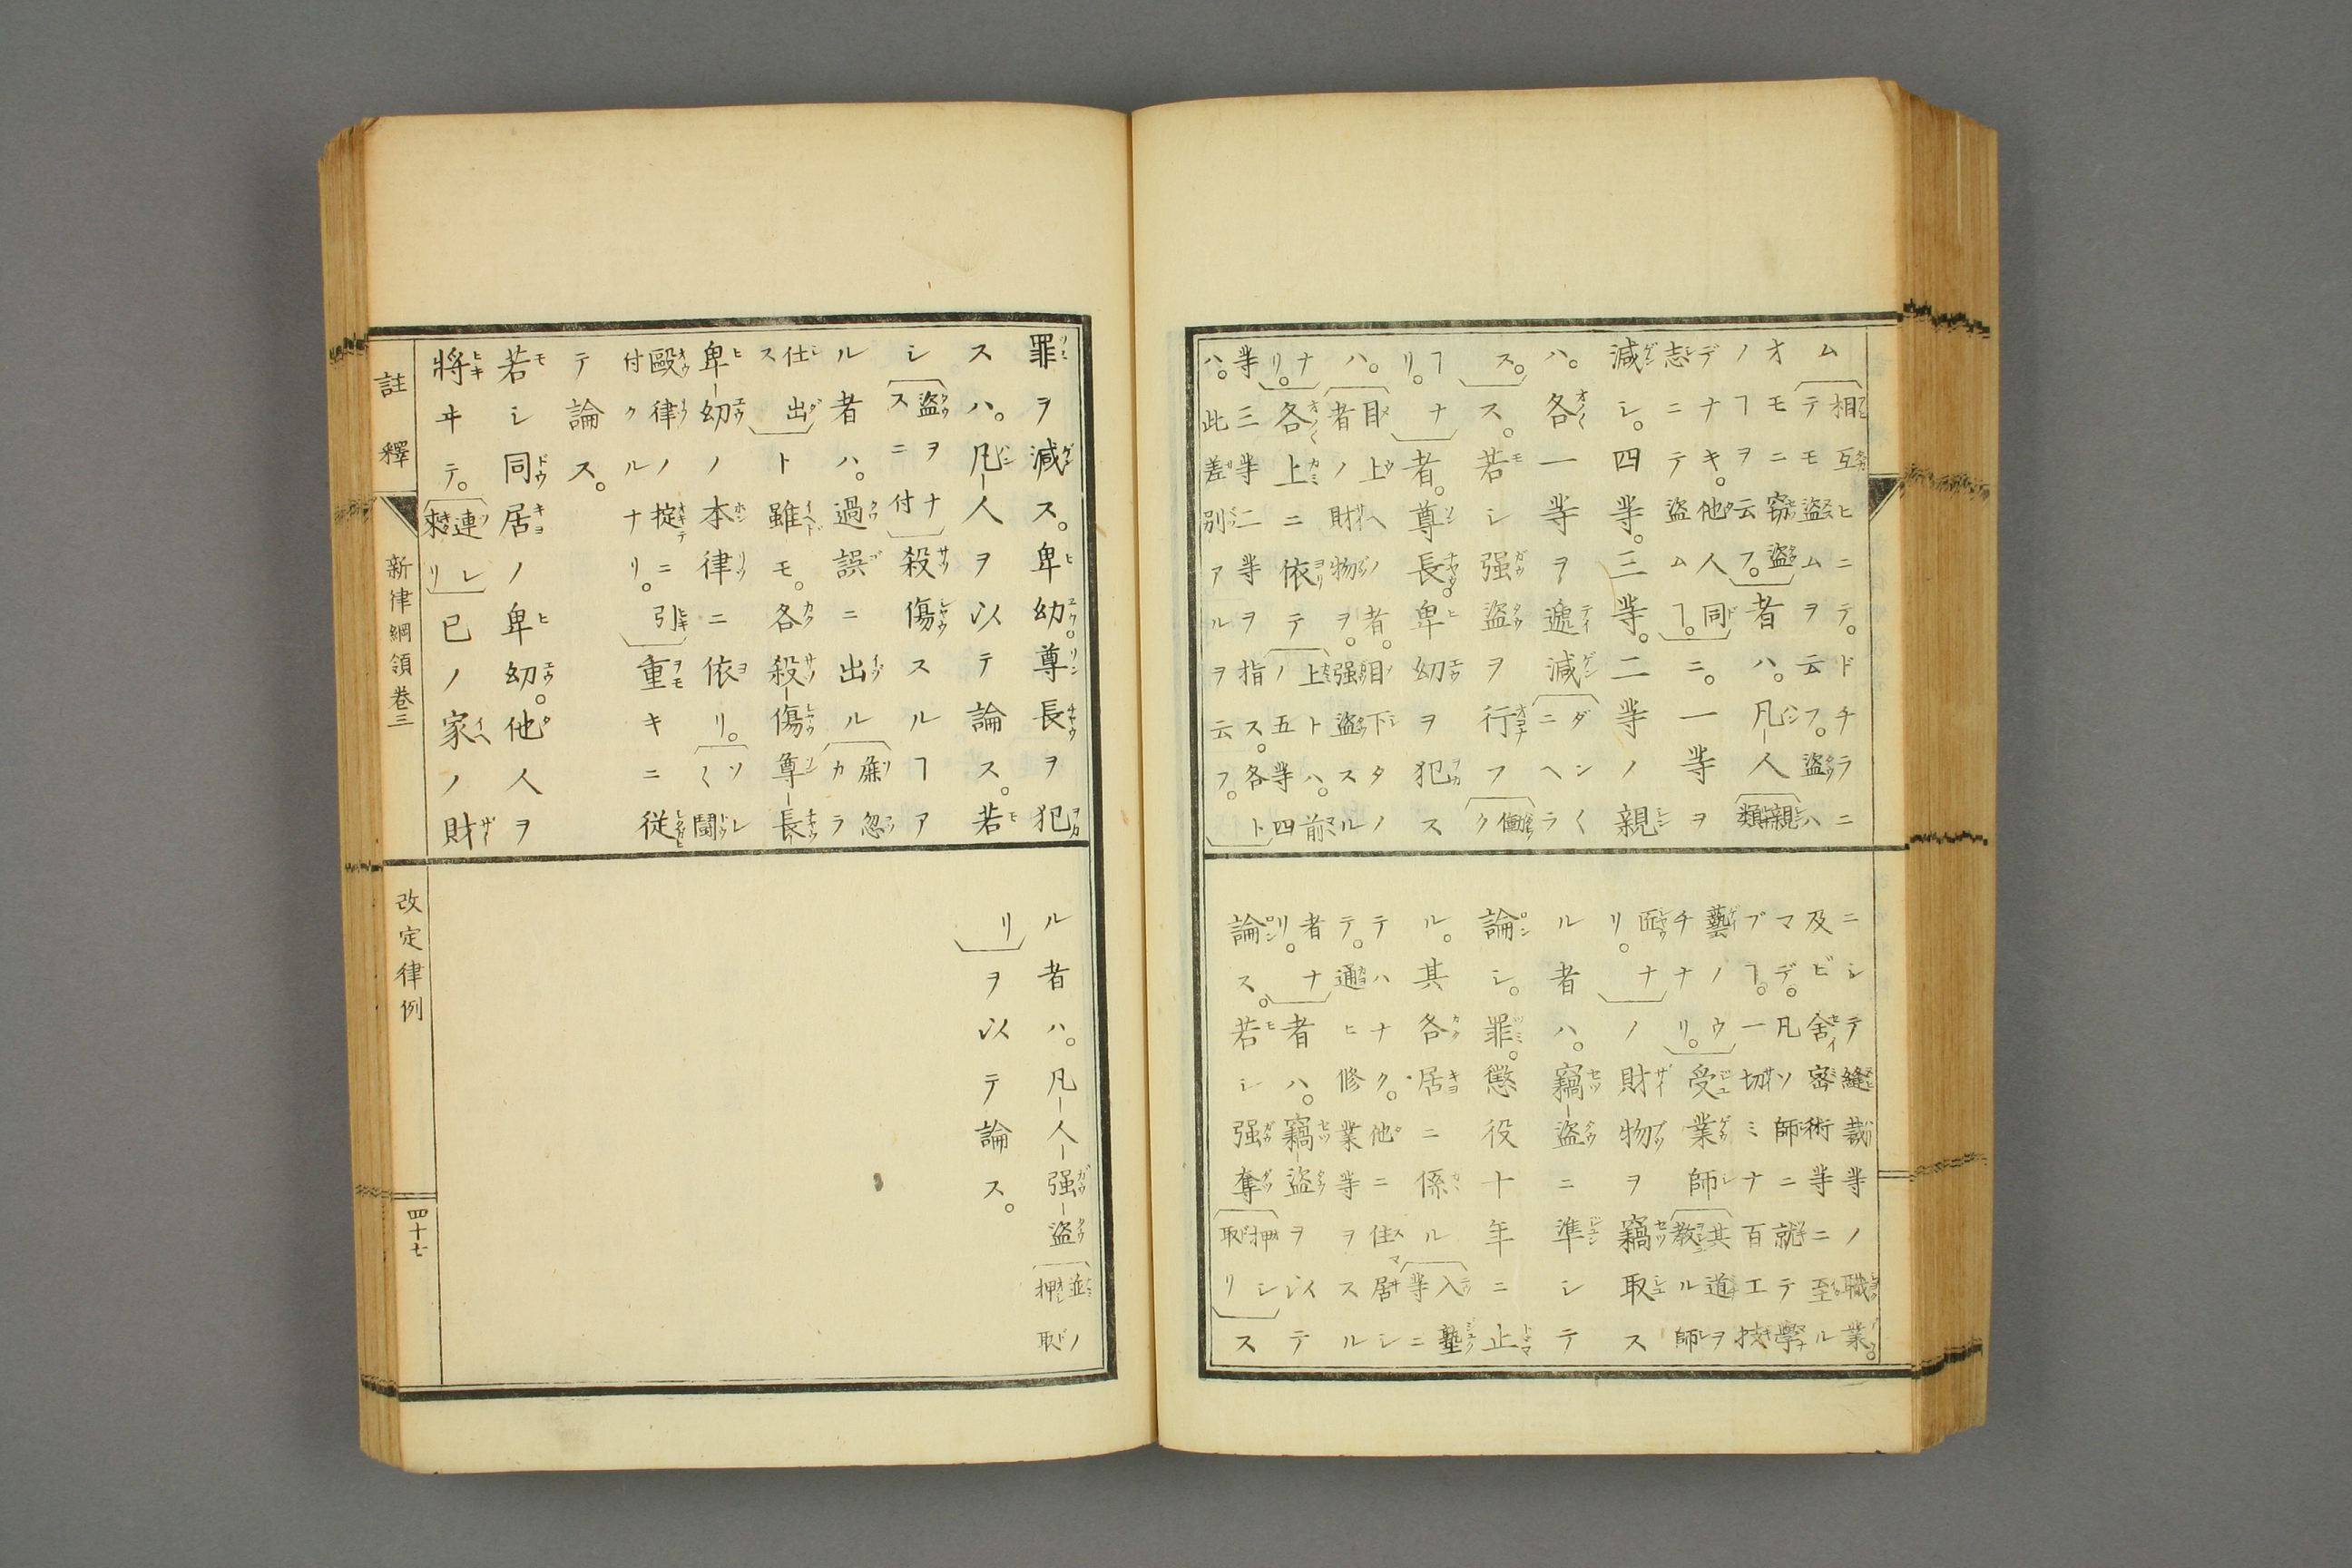 ム相互ヒニテ。ドチラニ
テモ盗ムヲ云フ。盗ハ
オモニ窃盗
ノヿヲ云フ。者ハ。凡人親類
デナキ。他人同
志ニテ盗ムヿ。ニ。一等ヲ
減シ。四等。三等。二等ノ親
ハ。各一等ヲ遞減ダンく
ニヘラ
ス。ス。若シ强盗ヲ行フ働ク
ヿナリ。者。尊長。卑幼ヲ犯ス
目上ヘノ者。目下タノ
者ノ財物ヲ。强盗スルハ。
ナリ。各上ニ依テ上トハ。前
ノ五等四
等三等二等ヲ指ス。各ト
ハ。此差別アルヲ云フ。
ニシテ縫裁等ノ職業。
及ビ舍密術等ニ至ル
マデ。凡ソ師ニ就テ學
ブヿ。一切ミナ百工技
藝ノウ
チナリ。受業師其道ヲ
教ル師
匠ナリ。ノ財物ヲ竊取ス
ル者ハ。竊盗ニ準シテ
論シ。罪。懲役十年ニ止
ル。其各居ニ係ル入塾
等ニ
テハナク。他ニ住居シ
テ。通ヒ修業等ヲスル
者ナリ。者ハ。竊盗ヲ以テ
論ス。若シ强奪押シ
取リス
罪ヲ減ス。卑幼。尊長ヲ犯
スハ。凡人ヲ以テ論ス。若
シ盗ヲナ
スニ付殺傷スルヿア
ル者ハ。過誤ニ出ル麁忽
カラ
仕出スト雖モ。各殺傷尊長
卑幼ノ本律ニ依リ。ソレ
く鬪
毆律ノ掟ニ引
付クルナリ。重キニ従
テ論ス。
若シ同居ノ卑幼。他人ヲ
將ヰテ。連レ
來リ已ノ家ノ財
ル者ハ。凡人强盗並ノ
押取
リヲ以テ論ス。
註釋
新律綱領卷三
改定律例
四十七